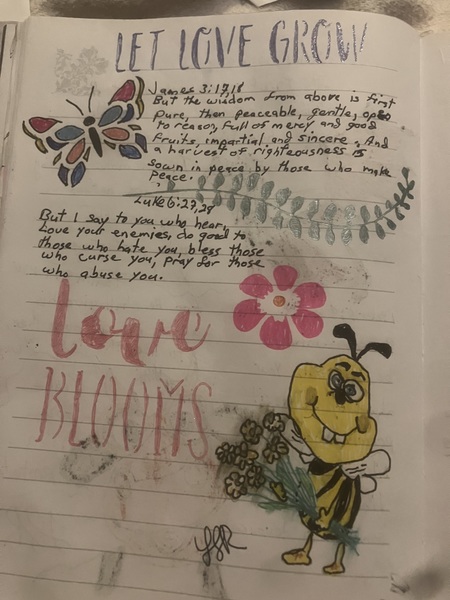 LET LOVE GROW
James 3:17,18
But the wisdom from above is first
pure, then peaceable, gentle, open
to reason, full of mercy and good
fruits, impartial and sincere. And
a harvest of righteousness is
sown in peace by those who make
Peace.
Luke 6:27,28
But I say to you who hear,
Love your enemies, do good to
those who hate you, bless those
who curse you, pray for those
who abuse you.
love
BLOOMS